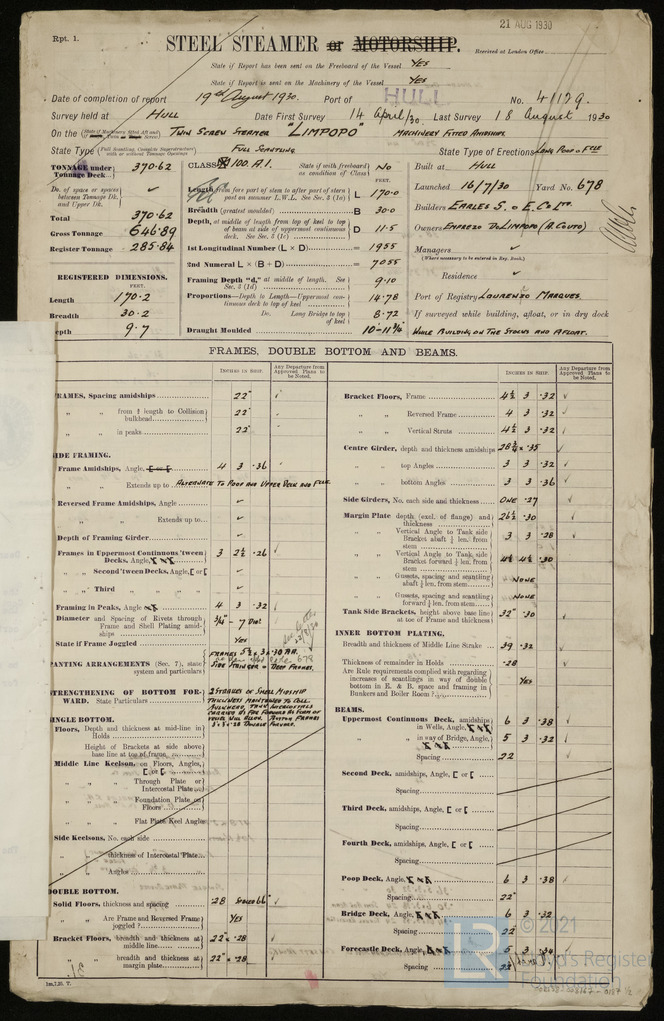 21 AUG 1930
Rpt. 1.
STEEL STEAMER or MOTORSHIP.
Received at London Office
State if Report has been sent on the Freeboard of the Vessel YES
State if Report is sent on the Machinery of the Vessel YES
Date of completion of report 19th August 1930. Port of HULL No. 41129.
Survey held at HULL Date First Survey 14 April/30 Last Survey 18 August 1930
On the TWIN SCREW STEAMER "LIMPOPO" MACHINERY FITTED AMIDSHIPS
State Type FULL SCANTLING State Type of Erections LONG POOP & FCLE
TONNAGE under Tonnage Deck 370.62
Do. of space or spaces between Tonnage Dk. and Upper Dk.
Total 370.62
Gross Tonnage 646.89
Register Tonnage 285.84
REGISTERED DIMENSIONS.
FEET.
Length 170.2
Breadth 30.2
epth 9.7
CLASS 100.A.1. State if with freeboard as condition of Class No
Length from fore part of stem to after part of stern post on summer L.W.L. See Sec. 3 (1a) L 170.0
Breadth (greatest moulded) B 30.0
Depth, at middle of length from top of keel to top of beam at side of uppermost continuous deck. See Sec. 3 (1c) D 11.5
1st Longitudinal Number (L × D) = 1955
2nd Numeral L × (B + D) = 7055
Framing Depth "d," at middle of length. See Sec. 3 (1d) 9.10
Proportions—Depth to Length—Uppermost continuous deck to top of keel 14.78
Do. Long Bridge to top of keel 8.72
Draught Moulded 10-11¾"
Built at HULL
Launched 16/7/30 Yard No. 678
Builders EARLES S. & E. Co LTD.
Owners EMPREZO DO LIMPOPO (A. COUTO)
Managers
(Where necessary to be entered in Reg. Book.)
Residence
Port of Registry LOURENZO MARQUES
If surveyed while building, afloat, or in dry dock
WHILE BUILDING ON THE STOCKS AND AFLOAT.
FRAMES, DOUBLE BOTTOM AND BEAMS.
INCHES IN SHIP.
Any Departure from Approved Plans to be Noted.
RAMES, Spacing amidships 22"
" " from ⅗ length to Collision bulkhead 22"
" " in peaks 22"
IDE FRAMING.
Frame Amidships, Angle, 4 3 .36
" " Extends up to ALTERNATE TO POOP AND UPPER DECK AND FCLE
Reversed Frame Amidships, Angle
" " Extends up to
Depth of Framing Girder
Frames in Uppermost Continuous 'tween Decks, Angle, 3 2½ .26
" " Second 'tween Decks, Angle, [ or [
" " Third "
Framing in Peaks, Angle 4 3 .32
Diameter and Spacing of Rivets through Frame and Shell Plating amidships 3/4" - 7 Dia.
State if Frame Joggled YES
PANTING ARRANGEMENTS (Sec. 7), state system and particulars
SIDE STRINGER & DEEP FRAMES.
STRENGTHENING OF BOTTOM FORWARD. State Particulars 2 STRAKES OF SHELL MIDSHIP
THICKNESS MAINTAINED TO COLL.
INGLE BOTTOM.
Floors, Depth and thickness at mid-line in Holds
Height of Brackets at side above base line at toe of frame
Middle Line Keelson, on Floors, Angles, [ or [
" " Through Plate or Intercostal Plate
" " Foundation Plate on Floors
" " Flat Plate Keel Angles
Side Keelsons, No. each side
" thickness of Intercostal Plate
" Angles
OUBLE BOTTOM.
Solid Floors, thickness and spacing .28 SPACED 66"
" " Are Frame and Reversed Frame joggled? YES
Bracket Floors, breadth and thickness at middle line 22" × .28
" " breadth and thickness at margin plate 22" × .28
1m,7,29. T.
INCHES IN SHIP.
Any Departure from Approved Plans to be Noted.
Bracket Floors, Frame 4½ 3 .32
" " Reversed Frame 4 3 .32
" " Vertical Struts 4½ 3 .32
Centre Girder, depth and thickness amidships 28¾ × .35
" " top Angles 3 3 .32
" " bottom Angles 3 3 .36
Side Girders, No. each side and thickness ONE .27
Margin Plate depth (excl. of flange) and thickness 26½ .30
" " Vertical Angle to Tank side Bracket abaft ¼ len. from stem 3 3 .28
" " Vertical Angle to Tank side Bracket forward ¼ len. from stem 4½ 4½ .30
" " Gussets, spacing and scantling abaft ¼ len. from stem NONE
" " Gussets, spacing and scantling forward ¼ len. from stem NONE
Tank Side Brackets, height above base line at toe of Frame and thickness 32" .30
INNER BOTTOM PLATING.
Breadth and thickness of Middle Line Strake 39 .32
Thickness of remainder in Holds .28
Are Rule requirements complied with regarding increases of scantlings in way of double bottom in E. & B. space and framing in Bunkers and Boiler Room? YES
BEAMS.
Uppermost Continuous Deck, amidships in Wells, Angle, 6 3 .38
" " in way of Bridge, Angle, 5 3 .32
Spacing 22
Second Deck, amidships, Angle, [ or [
Spacing
Third Deck, amidships, Angle, [ or [
Spacing
Fourth Deck, amidships, Angle, [ or [
Spacing
Poop Deck, Angle, 6 3 .38
Spacing 22"
Bridge Deck, Angle, 6 3 .32
Spacing 22
Forecastle Deck, Angle, 5 3 .34
Spacing 22
© 2021
Lloyd's Register
Foundation